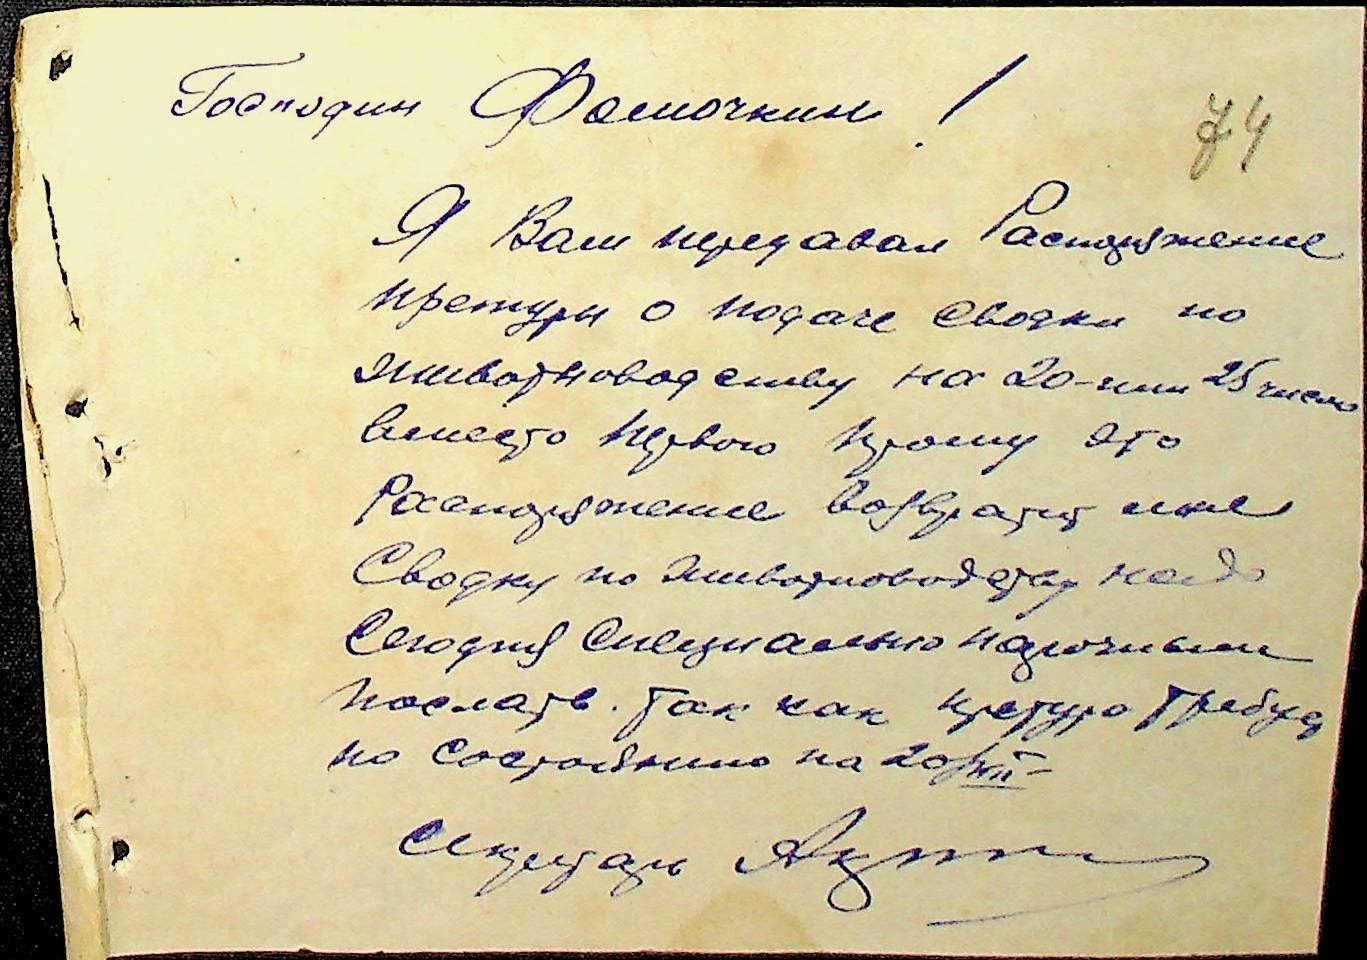 Господин Фомочкин!
74
Я Вам передавал Распоряжение
претуры о подаче сводки по
животноводству на 20-или 25 число
вместо первого прошу это
Распоряжение возвратит мне
Сводку по животноводству надо
Сегодня специально нарочным
послать. Так как претура требует
по состоянию на 20/XII-
Секретарь